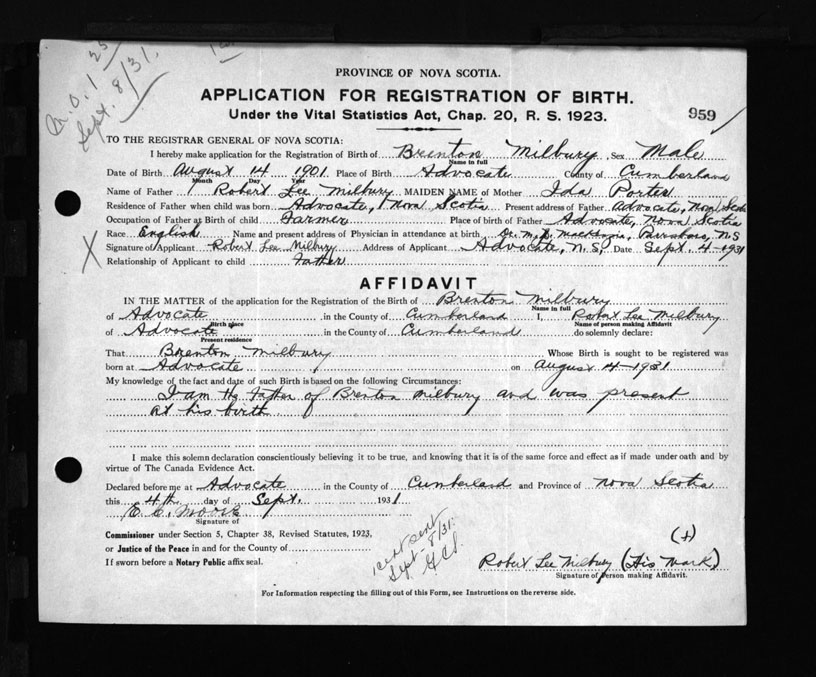 M.O. 1 25
Sept. 8/31.
PROVINCE OF NOVA SCOTIA.
APPLICATION FOR REGISTRATION OF BIRTH.
Under the Vital Statistics Act, Chap. 20, R. S. 1923.
959
TO THE REGISTRAR GENERAL OF NOVA SCOTIA:
I hereby make application for the Registration of Birth of Brenton Milbury Sex Male
Name in full
Date of Birth August 14 1901 Place of Birth Advocate County of Cumberland
Month Day Year
Name of Father Robert Lee Milbury MAIDEN NAME of Mother Ida Porter
Residence of Father when child was born Advocate, Nova Scotia Present address of Father Advocate, Nova Scotia
Occupation of Father at Birth of child Farmer Place of birth of Father Advocate, Nova Scotia
Race English Name and present address of Physician in attendance at birth Dr. M. D. MacKenzie, Parrsboro, NS
X Signature of Applicant Robert Lee Milbury Address of Applicant Advocate, N.S. Date Sept. 4-1931
Relationship of Applicant to child Father
AFFIDAVIT
IN THE MATTER of the application for the Registration of the Birth of Brenton Milbury
Name in full
of Advocate in the County of Cumberland I, Robert Lee Milbury
Birth place Name of person making Affidavit
of Advocate in the County of Cumberland do solemnly declare:
Present residence
That Brenton Milbury Whose Birth is sought to be registered was
born at Advocate on August 14-1901
My knowledge of the fact and date of such Birth is based on the following Circumstances:
I am the Father of Brenton Milbury and was present
at his birth
I make this solemn declaration conscientiously believing it to be true, and knowing that it is of the same force and effect as if made under oath and by
virtue of The Canada Evidence Act.
Declared before me at Advocate in the County of Cumberland and Province of Nova Scotia
this 4th day of Sept. 1931
E. E. Moore
Signature of
Commissioner under Section 5, Chapter 38, Revised Statutes, 1923,
or Justice of the Peace in and for the County of
If sworn before a Notary Public affix seal.
cert sent
Sept. 8/31.
(+)
Robert Lee Milbury (His Mark)
Signature of person making Affidavit.
For Information respecting the filling out of this Form, see Instructions on the reverse side.